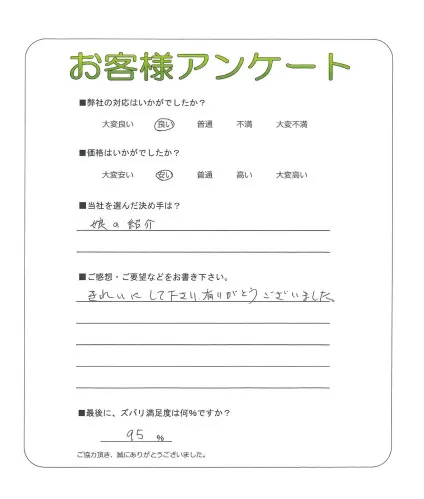 お客様アンケート
■弊社の対応はいかがでしたか？
大変良い 良い 普通 不満 大変不満
■価格はいかがでしたか？
大変安い 安い 普通 高い 大変高い
■当社を選んだ決め手は？
娘の紹介
■ご感想・ご要望などをお書き下さい。
きれいにして下さり、有りがとうございました。
■最後に、ズバリ満足度は何％ですか？
95 ％
ご協力頂き、誠にありがとうございました。